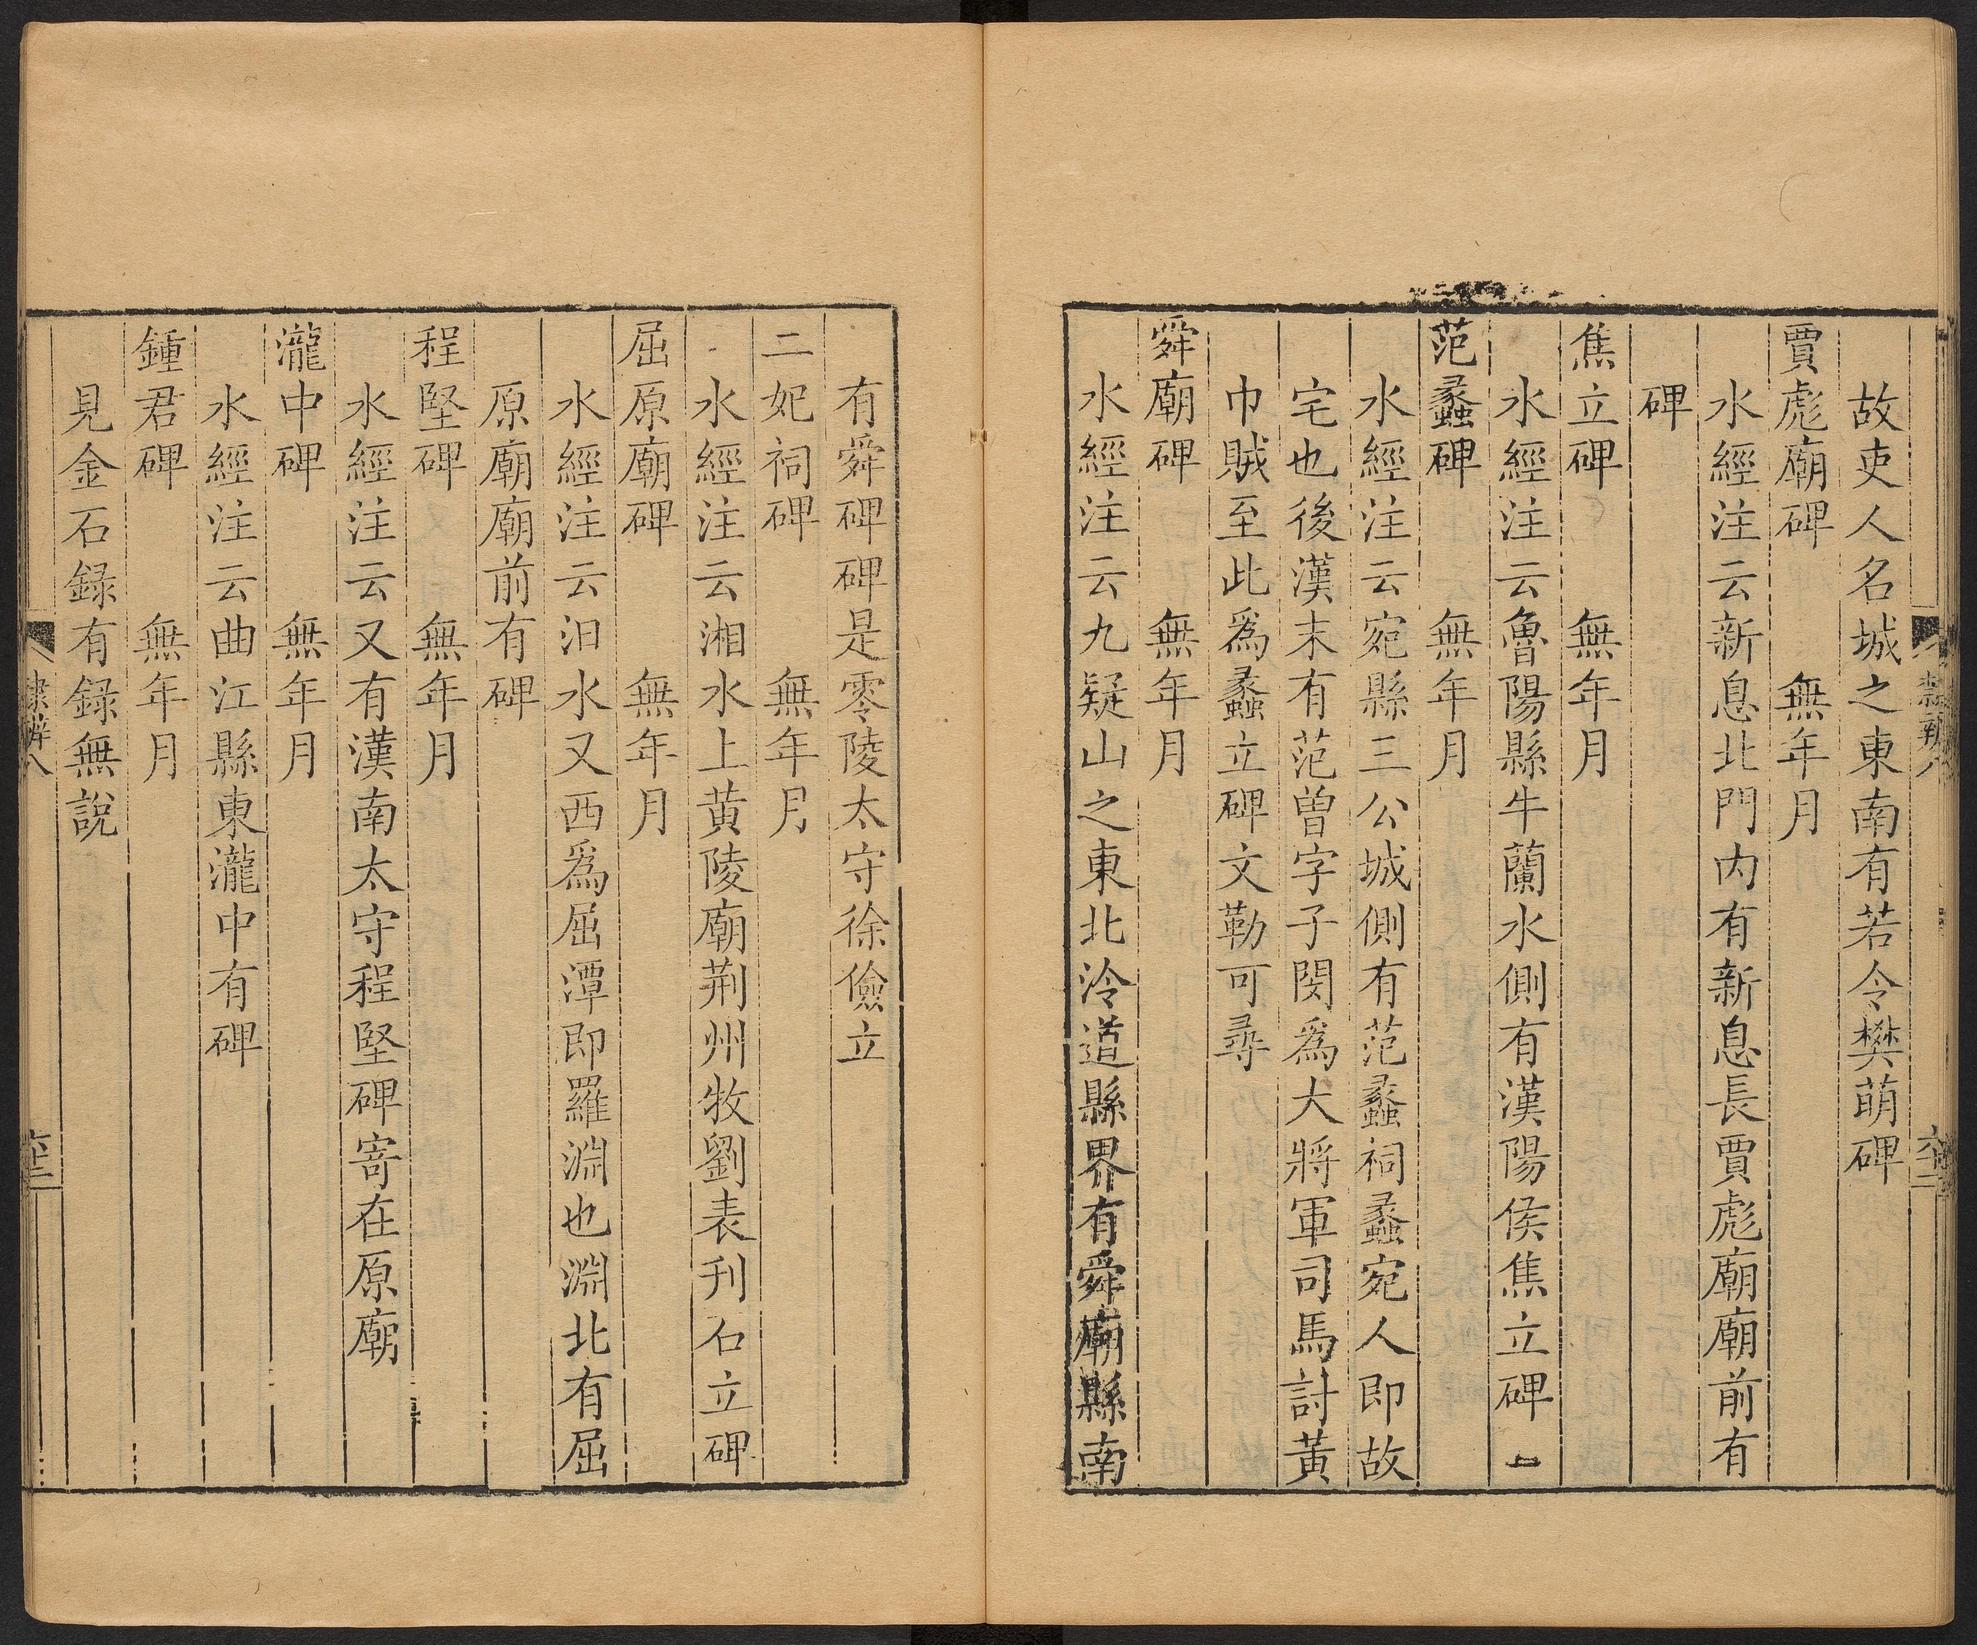 故吏人名城之東南有若令樊萌碑
賈彪廟碑 無年月
水經注云新息北門內有新息長賈彪廟廟前有
碑
焦立碑 無年月
水經注云魯陽縣牛蘭水側有漢陽侯焦立碑一
范蠡碑 無年月
水經注云宛縣三公城側有范蠡祠蠡宛人即故
宅也後漢末有范曾字子閔爲大將軍司馬討黃
巾賊至此爲蠡立碑文勒可尋
舜廟碑 無年月
水經注云九疑山之東北泠道縣界有舜廟縣南
有舜碑碑是零陵太守徐儉立
二妃祠碑 無年月
水經注云湘水上黃陵廟荆州牧劉表刋石立碑
屈原廟碑 無年月
水經注云汨水又西爲屈潭即羅淵也淵北有屈
原廟廟前有碑
程堅碑 無年月
水經注云又有漢南太守程堅碑寄在原廟
瀧中碑 無年月
水經注云曲江縣東瀧中有碑
鍾君碑 無年月
見金石録有録無說
隸辨八